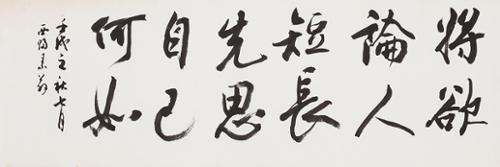 將欲
論人
短長
先思
自己
何如
壬戌之秋七月